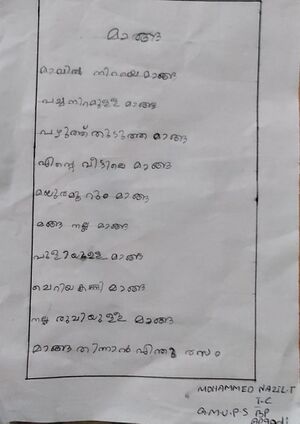 മാങ്ങ
മാവിൽ നിറയെ മാങ്ങ
പച്ച നിറമുള്ള മാങ്ങ
പഴുത്ത് തുടുത്ത മാങ്ങ
എന്റെ വീട്ടിലെ മാങ്ങ
മധുരമൂറും മാങ്ങ
നല്ല മാങ്ങ
പുളിയുള്ള മാങ്ങ
ചെറിയ കണ്ണി മാങ്ങ
നല്ല രുചിയുള്ള മാങ്ങ
മാങ്ങ തിന്നാൻ എന്തു രസം
MOHAMMED NAZIL.T
1-C
G.M.U.P.S BP
Angadi